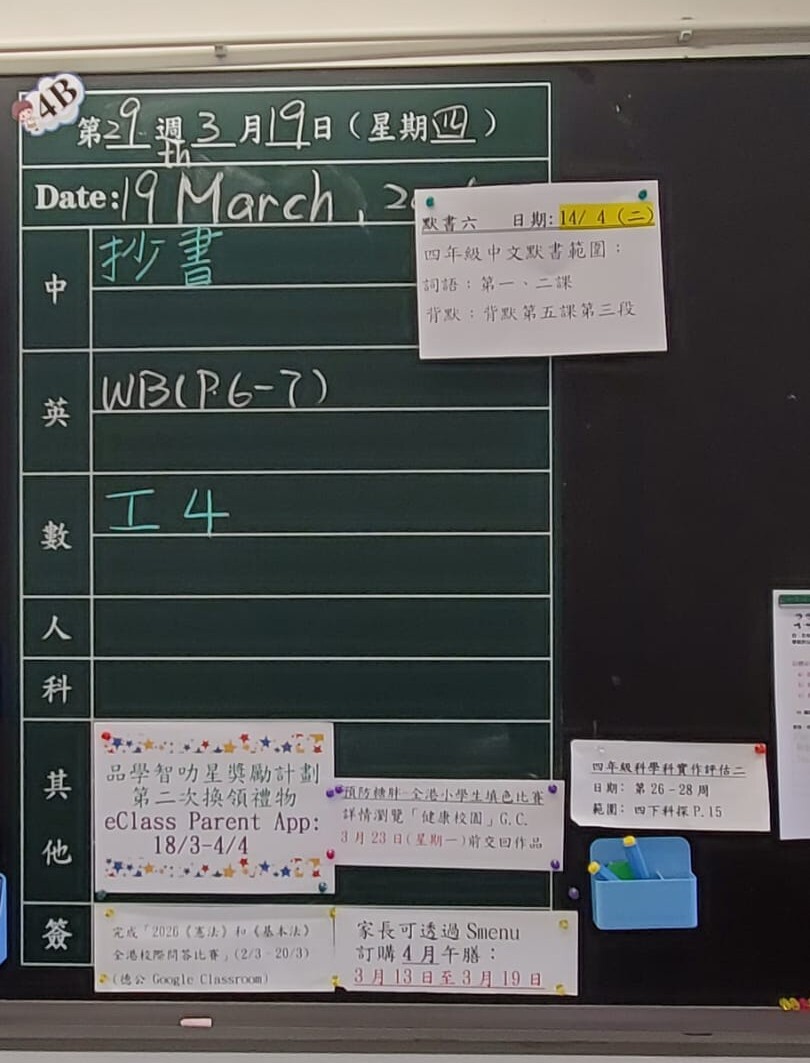 4B
第29週3月19日（星期四）
th
Date:19 March, 2
默書六 日期: 14/ 4 (二)
四年級中文默書範圍：
詞語：第一、二課
背默：背默第五課第三段
中
抄書
英
WB(P.6-7)
數
工4
人
科
其他
品學智叻星獎勵計劃
第二次換領禮物
eClass Parent App:
18/3-4/4
預防糖胖-全港小學生填色比賽
詳情瀏覽「健康校園」G.C.
3月23日(星期一)前交回作品
四年級科學科實作評估二
日期: 第26-28周
範圍: 四下科探P.15
簽
完成「2026《憲法》和《基本法》
全港校際問答比賽」(2/3-20/3)
(德公 Google Classroom)
家長可透過 Smenu
訂購4月午膳：
3月13日至3月19日